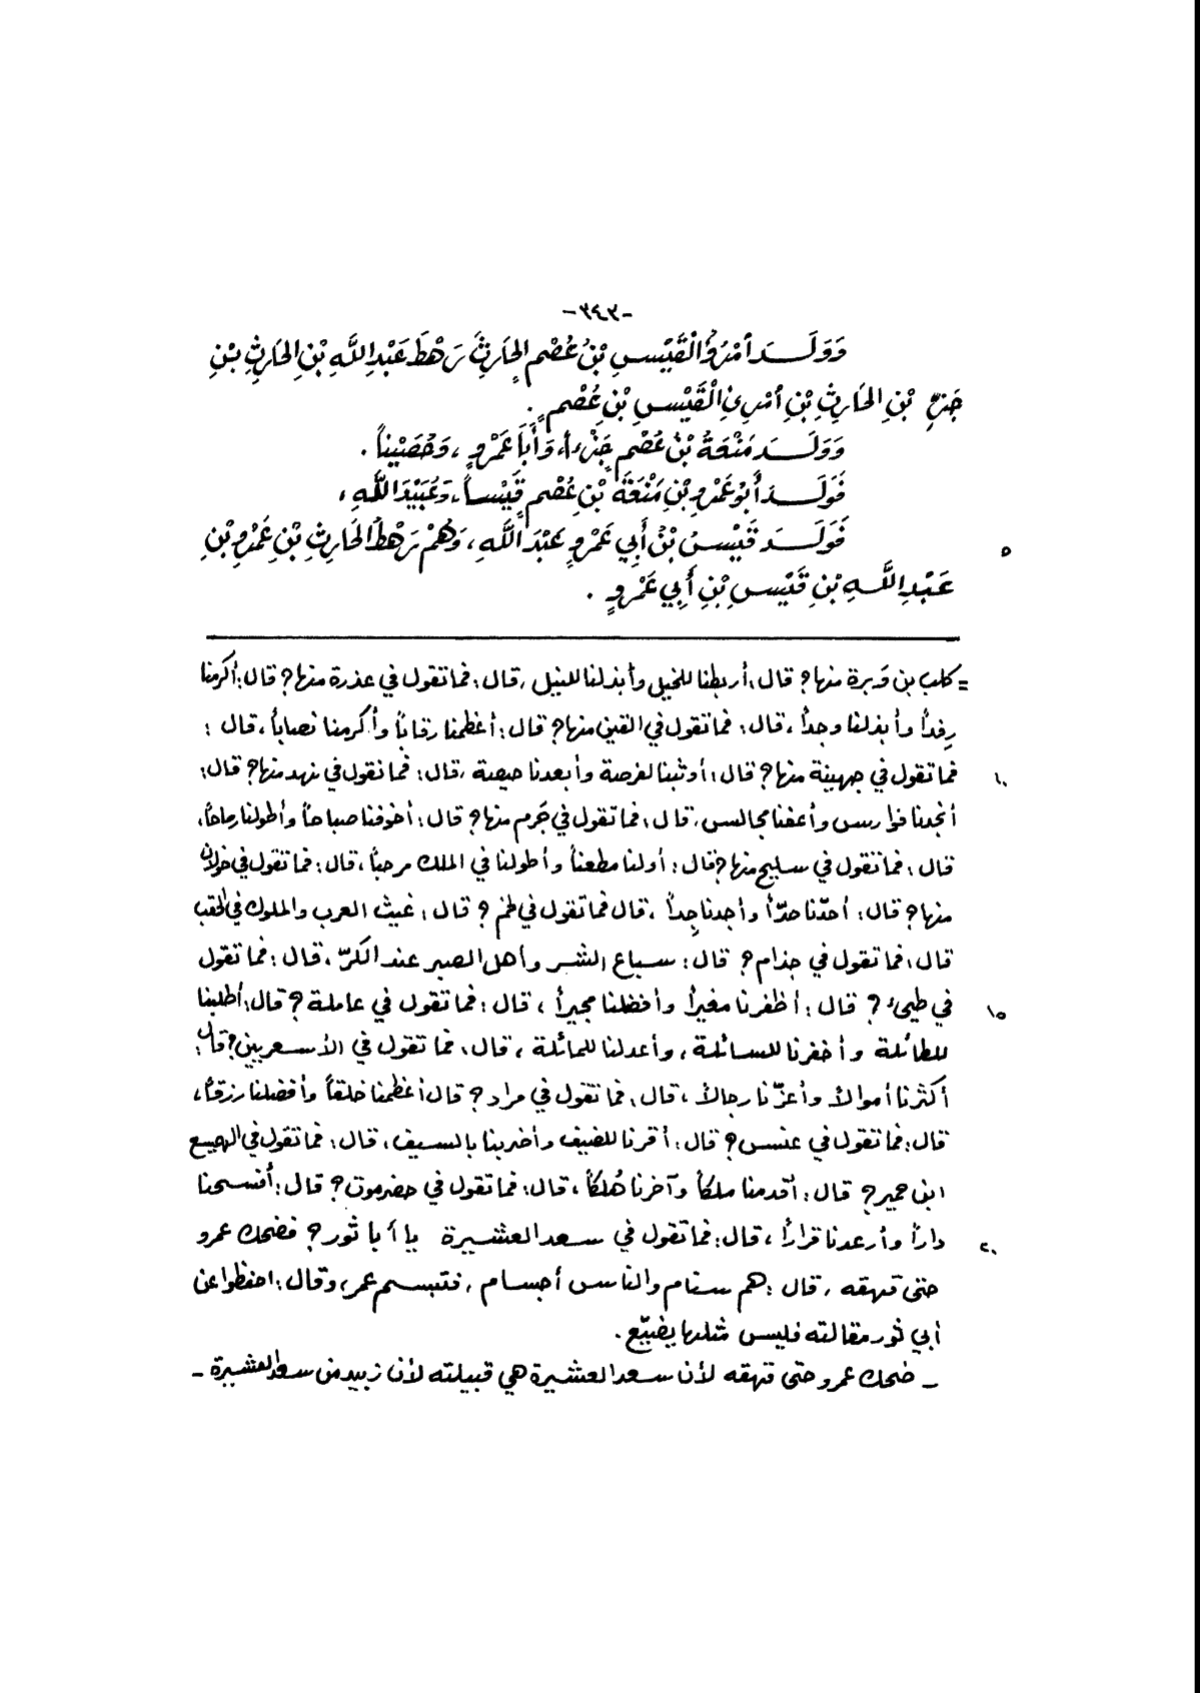 -٣٤٣-
وَوَلَــدَ أمْرُؤُ الْقَيْسِ بْنُ عُصْمٍ الحَارِثَ رَهْطَ عَبْدِ اللَّهِ بْنِ الحَارِثِ بْنِ
جَزْءِ بْنِ الحَارِثِ بْنِ أمْرِئِ الْقَيْسِ بْنِ عُصْمٍ .
وَوَلَــدَ مَنْعَةُ بْنُ عُصْمٍ جَزْءاً، وَأَبَا عَمْرٍو ، وَحُصَيْناً .
فَوَلَــدَ أَبُو عَمْرِو بْنِ مَنْعَةَ بْنِ عُصْمٍ قَيْساً، وَعُبَيْدَ اللَّهِ ،
فَوَلَــدَ قَيْسُ بْنُ أَبِي عَمْرٍو عَبْدَ اللَّهِ ، وَهُمْ رَهْطُ الحَارِثِ بْنِ عَمْرِو بْنِ
٥
عَبْدِ اللَّهِ بْنِ قَيْسِ بْنِ أَبِي عَمْرٍو .
= كلب بن وَبرة منها؟ قال: أربطنا للخيل وأبذلنا للنيل ، قال: فما تقول في عذرة منها؟ قال: أكرمنا
رِفداً وأبذلنا وجداً ، قال: فما تقول في القين منها؟ قال: أعظمنا رقاباً وأكرمنا نصاباً ، قال :
فما تقول في جهينة منها؟ قال: أوثبنا لفرصة وأبعدنا حيصة ، قال: فما تقول في نهد منها؟ قال:
١٠
أنجدنا فوارس وأعفنا مجالس، قال: فما تقول في جَرم منها؟ قال: أخوفنا صباحاً وأطولنا رماحاً،
قال: فما تقول في سليح منها؟ قال: أولنا مطعناً وأطولنا في الملك مرحباً ، قال: فما تقول في خولان
منها؟ قال: أحدّنا حدّاً وأجدنا جِداً ، قال فما تقول في لخم؟ قال: غيث العرب والملوك في الحقب
قال: فما تقول في جذام؟ قال: سباع الشر وأهل الصبر عند الكرّ ، قال: فما تقول
في طيىء؟ قال: أظفرنا مغيراً وأفضلنا مجيراً ، قال: فما تقول في عاملة؟ قال: أطلبنا
١٥
للطائلة وأخفرنا للسائلة ، وأعدلنا للمائلة ، قال: فما تقول في الأسعريين؟ قال:
أكثرنا أموالاً وأعزّنا رجالاً ، قال: فما تقول في مراد؟ قال أعظمنا خلقاً وأفضلنا رزقاً،
قال: فما تقول في عنس؟ قال: أقرنا للضيف وأضربنا بالسيف ، قال: فما تقول في الهميسع
ابن حمير؟ قال: أقدمنا ملكاً وآخرنا هُلكاً ، قال: فما تقول في حضرموت؟ قال: أفسحنا
داراً وأرعدنا قراراً ، قال: فما تقول في سعد العشيرة يا أبا ثور؟ فضحك عمرو
٢٠
حتى قهقه ، قال: هم سنام والناس أجسام ، فتبسم عمر، وقال: احفظوا عن
أبي ثور مقالته فليس مثلها يضيّع .
- ضحك عمرو حتى قهقه لأن سعد العشيرة هي قبيلته لأن زبيد من سعد العشيرة -